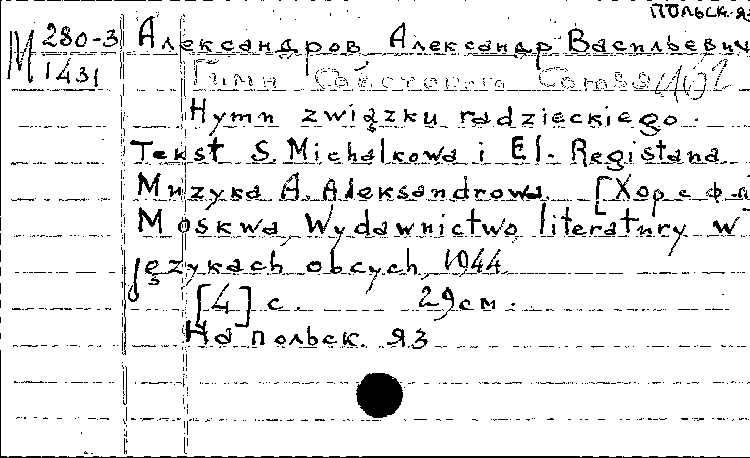 ПОЛЬСК. ЯЗ
М 280-3
1431
Александров Александр Васильевич
Гимн Советского Союза
Hymn związku radzieckiego.
Tekst S. Michalkowa i El. Registana
Muzyka A. Aleksandrowa. [Хор с ф-п
Moskwa, Wydawnictwo literatury w
językach obcych, 1944
[4] с. 29 см.
На польск. яз